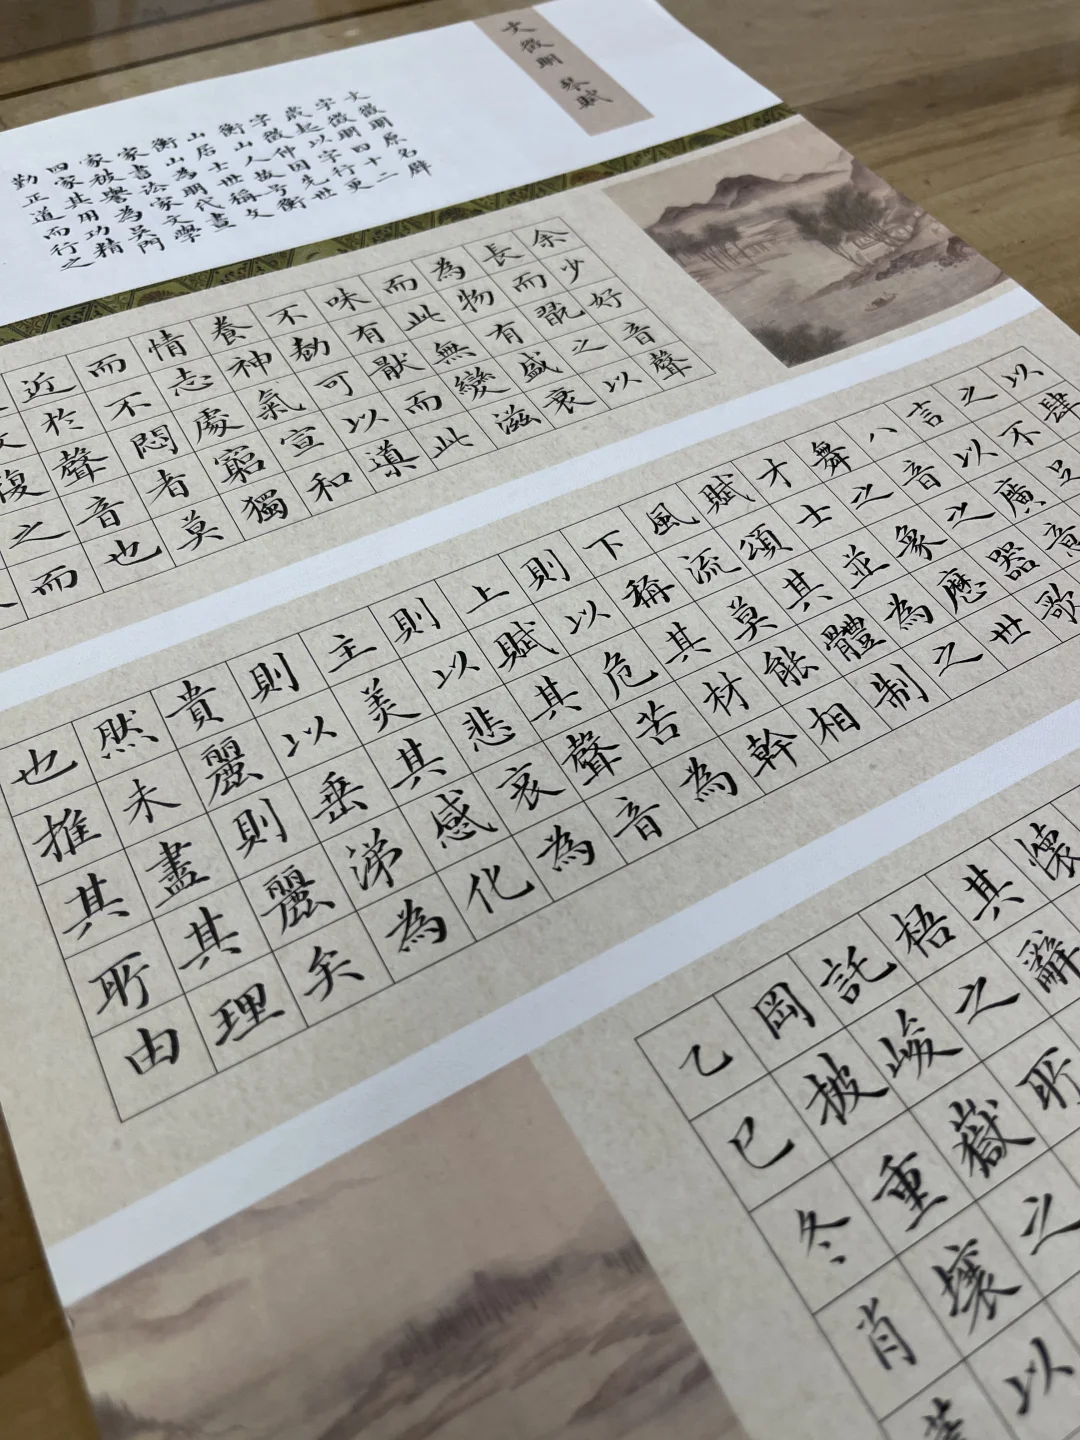 文徵明 琴賦
文徵明原名壁
字徵明四十二
歲起以字行更
字徵仲因先世
衡山人故号衡
山居士世稱文
衡山為明代畫
家書法家文學
家被譽為吳門
四家其用功精
勤正道而行之
余少好音聲
長而翫之以
為物有盛衰
而此無變滋
味有猒而此
不勌可以導
養神氣宣和
情志處窮獨
而不悶者莫
近於聲音也
復之而
以肆
之不足
言以廣意
八音之器歌
舞之象歷世
才士並為之
賦頌其體制
風流莫能相
下稱其材幹
則以危苦為
上賦其聲音
則以悲哀為
主美其感化
則以垂涕為
貴麗則麗矣
然未盡其理
也推其所由
懷
其辭
梧之所
託峻嶽之
岡披重壤以
乙巳冬肖